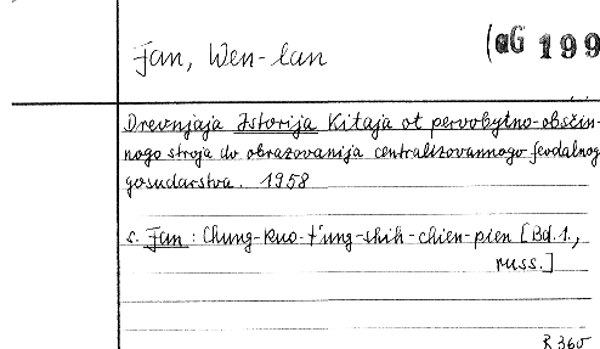 (aG 199
Fan, Wen-lan
Drevnjaja Istorija Kitaja ot pervobytno-obščin-
nogo stroja do obrazovanija centralizovannogo feodalnog
gosudarstva. 1958
s. Fan: Chung-kuo-t'ung-shih-chien-pien [Bd.1.,
russ.]
R 360